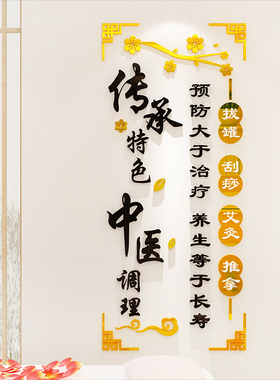 传承
特色
中医
调理
预防大于治疗 养生等于长寿
拔罐
刮痧
艾灸
推拿